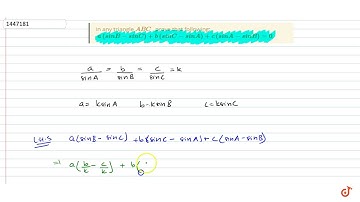 1447181
In any triangle ABC, prove that following:
a (sin B − sin C) + b (sin C − sin A) + c (sin A − sin B) = 0
a/sinA = b/sinB = c/sinC = k
a = ksinA b - ksinB c = ksinC
L.H.S a(sinB - sinC) + b(sinC - sinA) + c(sinA - sinB)
⇒ a(b/k - c/k) + b(